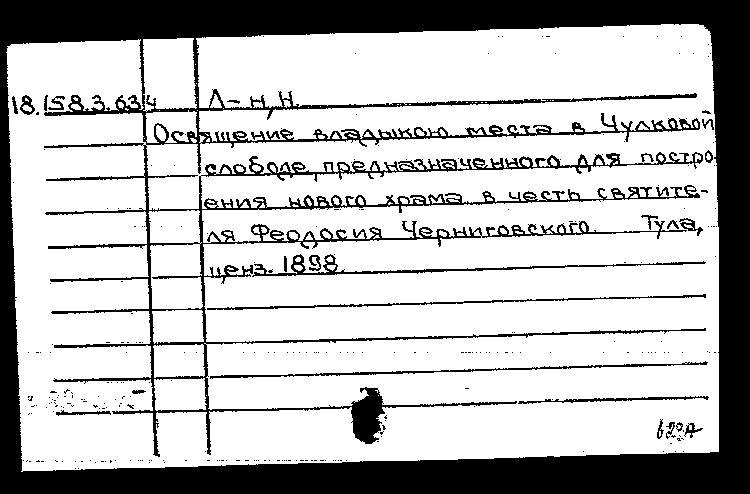 18.158.3.634 Л-н, Н.
Освящение владыкою места в Чулковой
слободе, предназначенного для постро-
ения нового храма в честь святите-
ля Феодосия Черниговского. Тула,
ценз. 1898.